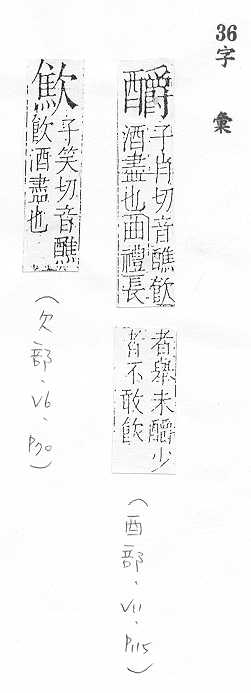 36字彙
釂
子肖切音醮飲
酒盡也曲禮長
者舉未釂少
者不敢飲
(酉部、V11、P115)
子笑切音醮
飲酒盡也
(欠部、V6、P70)